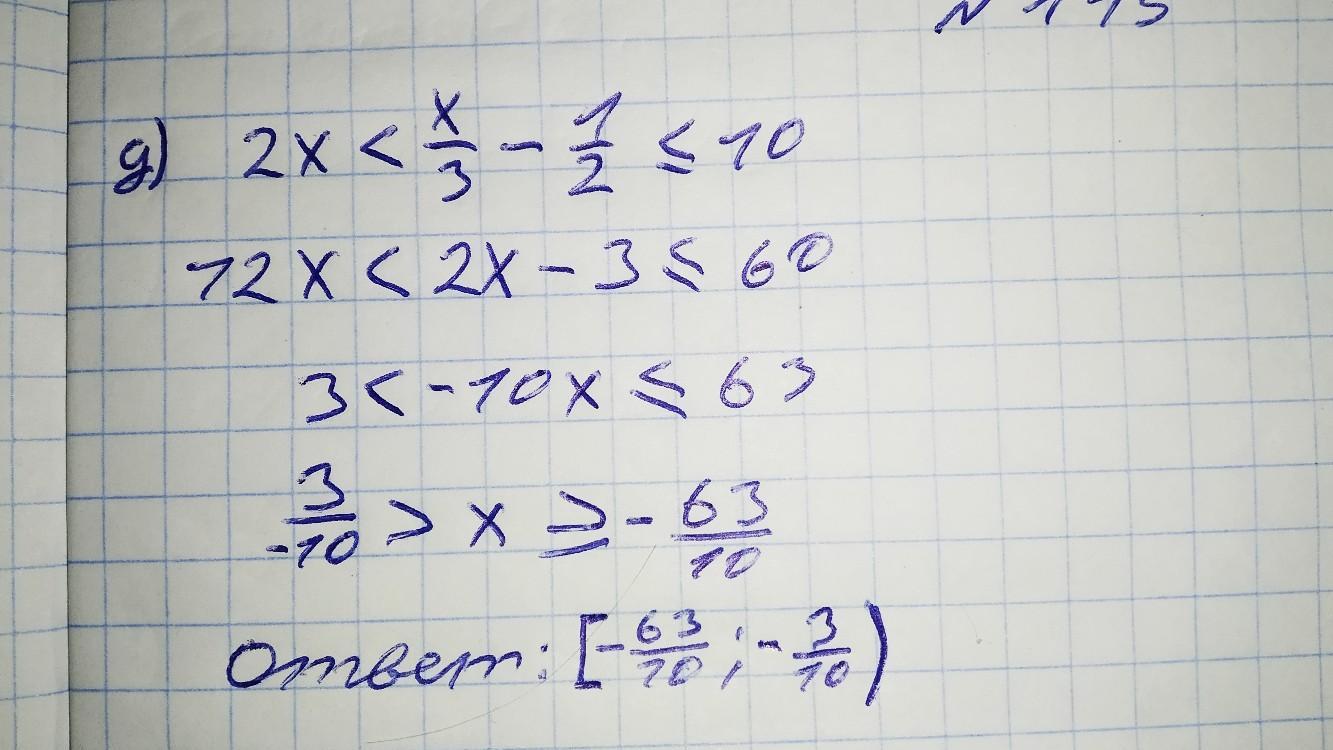 N 115
д) 2x < x/3 - 1/2 ≤ 10
12x < 2x - 3 ≤ 60
3 < -10x ≤ 63
3/-10 > x ≥ - 63/10
Ответ: [-63/10 ; -3/10)